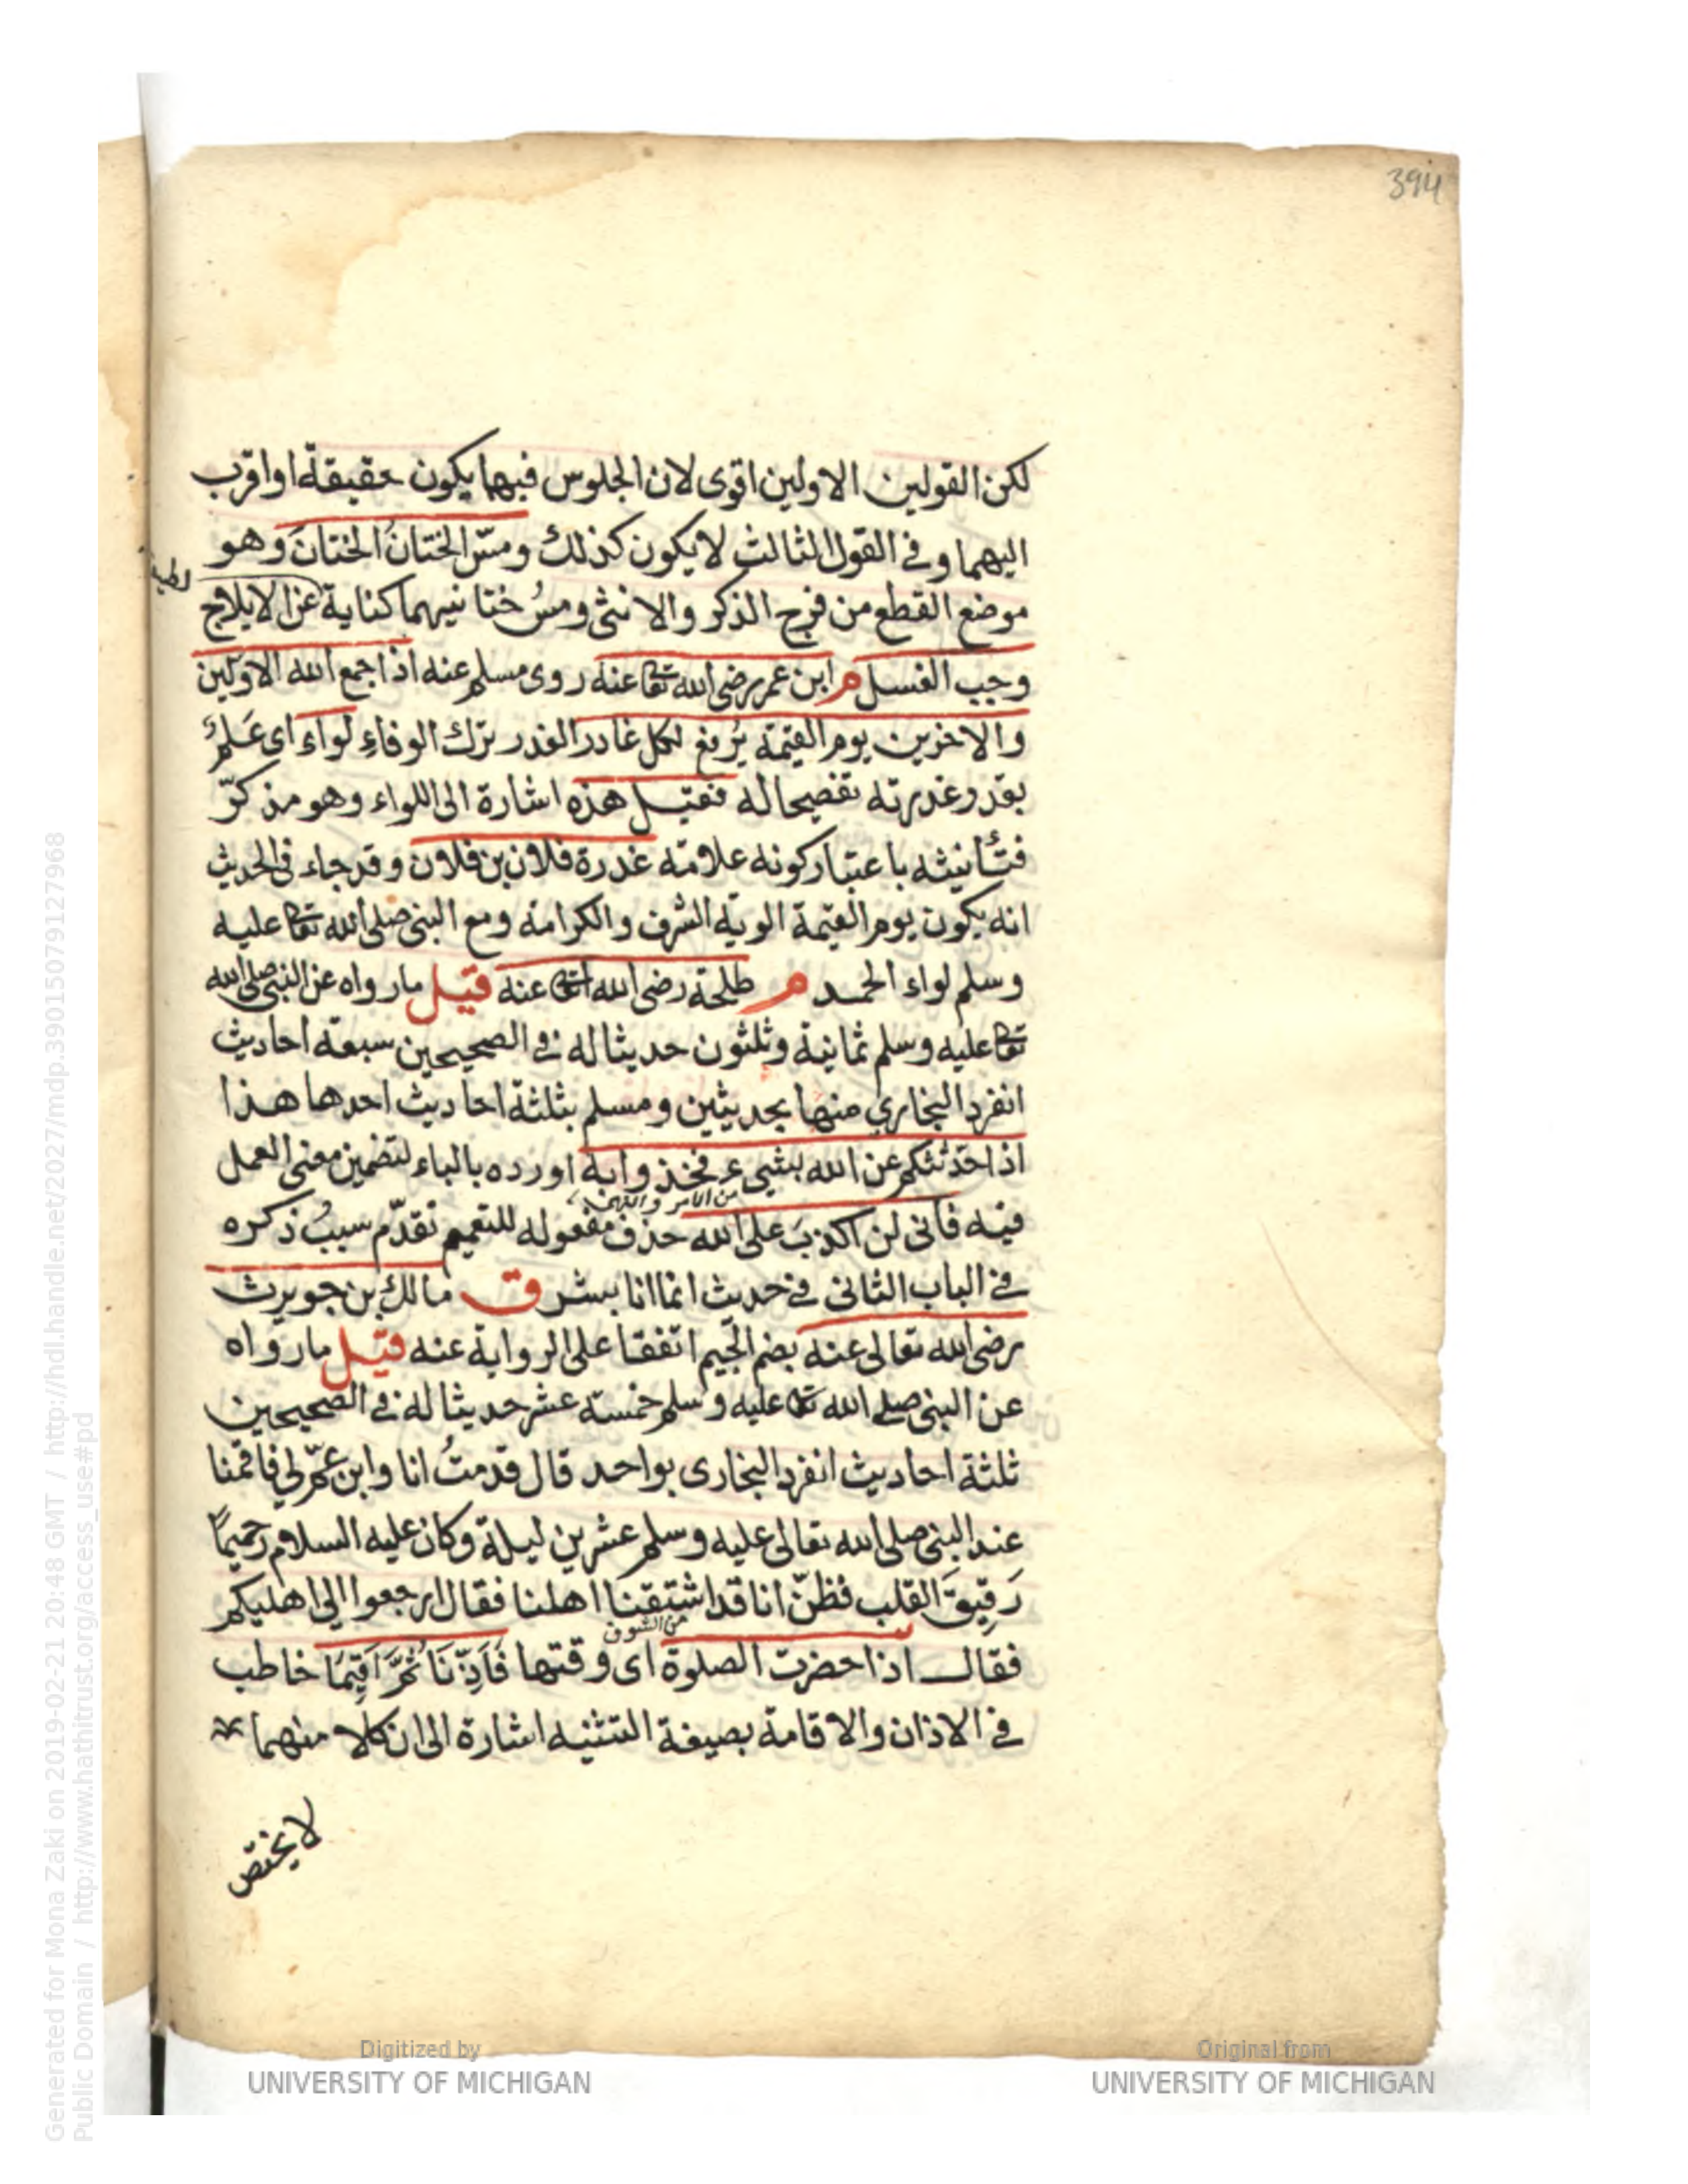 394
لكن القولين الاولين اقوى لان الجلوس فيهما يكون حقيقة او اقرب
اليهما وفى القول الثالث لا يكون كذلك ومسّ الختانُ الختانَ وهو
موضع القطع من فرج الذكر والانثى ومسُ ختانيهما كناية عن الايلاج
وجب الغسل م ابن عمر رضى الله تعا عنه روى مسلم عنه اذا جمع الله الاولين
والاخرين يوم القيمة يُرفع لكل غادر الغدر ترك الوفاءِ لواء اى عَلَمٌ
بقدر غدرته تفضيحا له فقيل هذه اشارة الى اللواء وهو مذكّر
فتأنيثه باعتبار كونه علامة غدرة فلان بن فلان وقد جاء فى الحديث
انه يكون يوم القيمة الوية الشرف والكرامة ومع النبى صلى الله تعا عليه
وسلم لواء الحمد م طلحة رضى الله تعا عنه قيل ما رواه عن النبى صلى الله
تعا عليه وسلم ثمانية وثلثون حديثا له فى الصحيحين سبعة احاديث
انفرد البخاري منها بحديثين ومسلم بثلثة احاديث احدها هذا
اذا حدّثتكم عن الله بشيء فخذوا به اورده بالباء لتضمين معنى العمل
من الامر والنهى
فيه فانى لن اكذبَ على الله حذف مفعوله للتعميم تقدّم سببُ ذكره
فى الباب الثانى فى حديث انما انا بشر ق مالك بن جويرث
رضى الله تعالى عنه بضم الجيم اتفقا على الرواية عنه قيل ما رواه
عن النبى صلى الله تعا عليه وسلم خمسة عشر حديثا له فى الصحيحين
ثلثة احاديث انفرد البخارى بواحد قال قدمتُ انا وابن عمّ لى فاقمنا
عند النبى صلى الله تعالى عليه وسلم عشرين ليلة وكان عليه السلام رحيمًا
رَقِيقَ القلب فظنّ انا قد اشتقنا اهلنا فقال ارجعوا الى اهليكم
من الشوق
فقال اذا حضرت الصلوة اى وقتها فَاَذِّنَا ثُمَّ اَقِيمَا خاطب
فى الاذان والاقامة بصيغة التثنية اشارة الى ان كلا منهما
لا يختص
Digitized by
UNIVERSITY OF MICHIGAN
Original from
UNIVERSITY OF MICHIGAN
Generated for Mona Zaki on 2019-02-21 20:48 GMT / http://hdl.handle.net/2027/mdp.39015079127968
Public Domain / http://www.hathitrust.org/access_use#pd